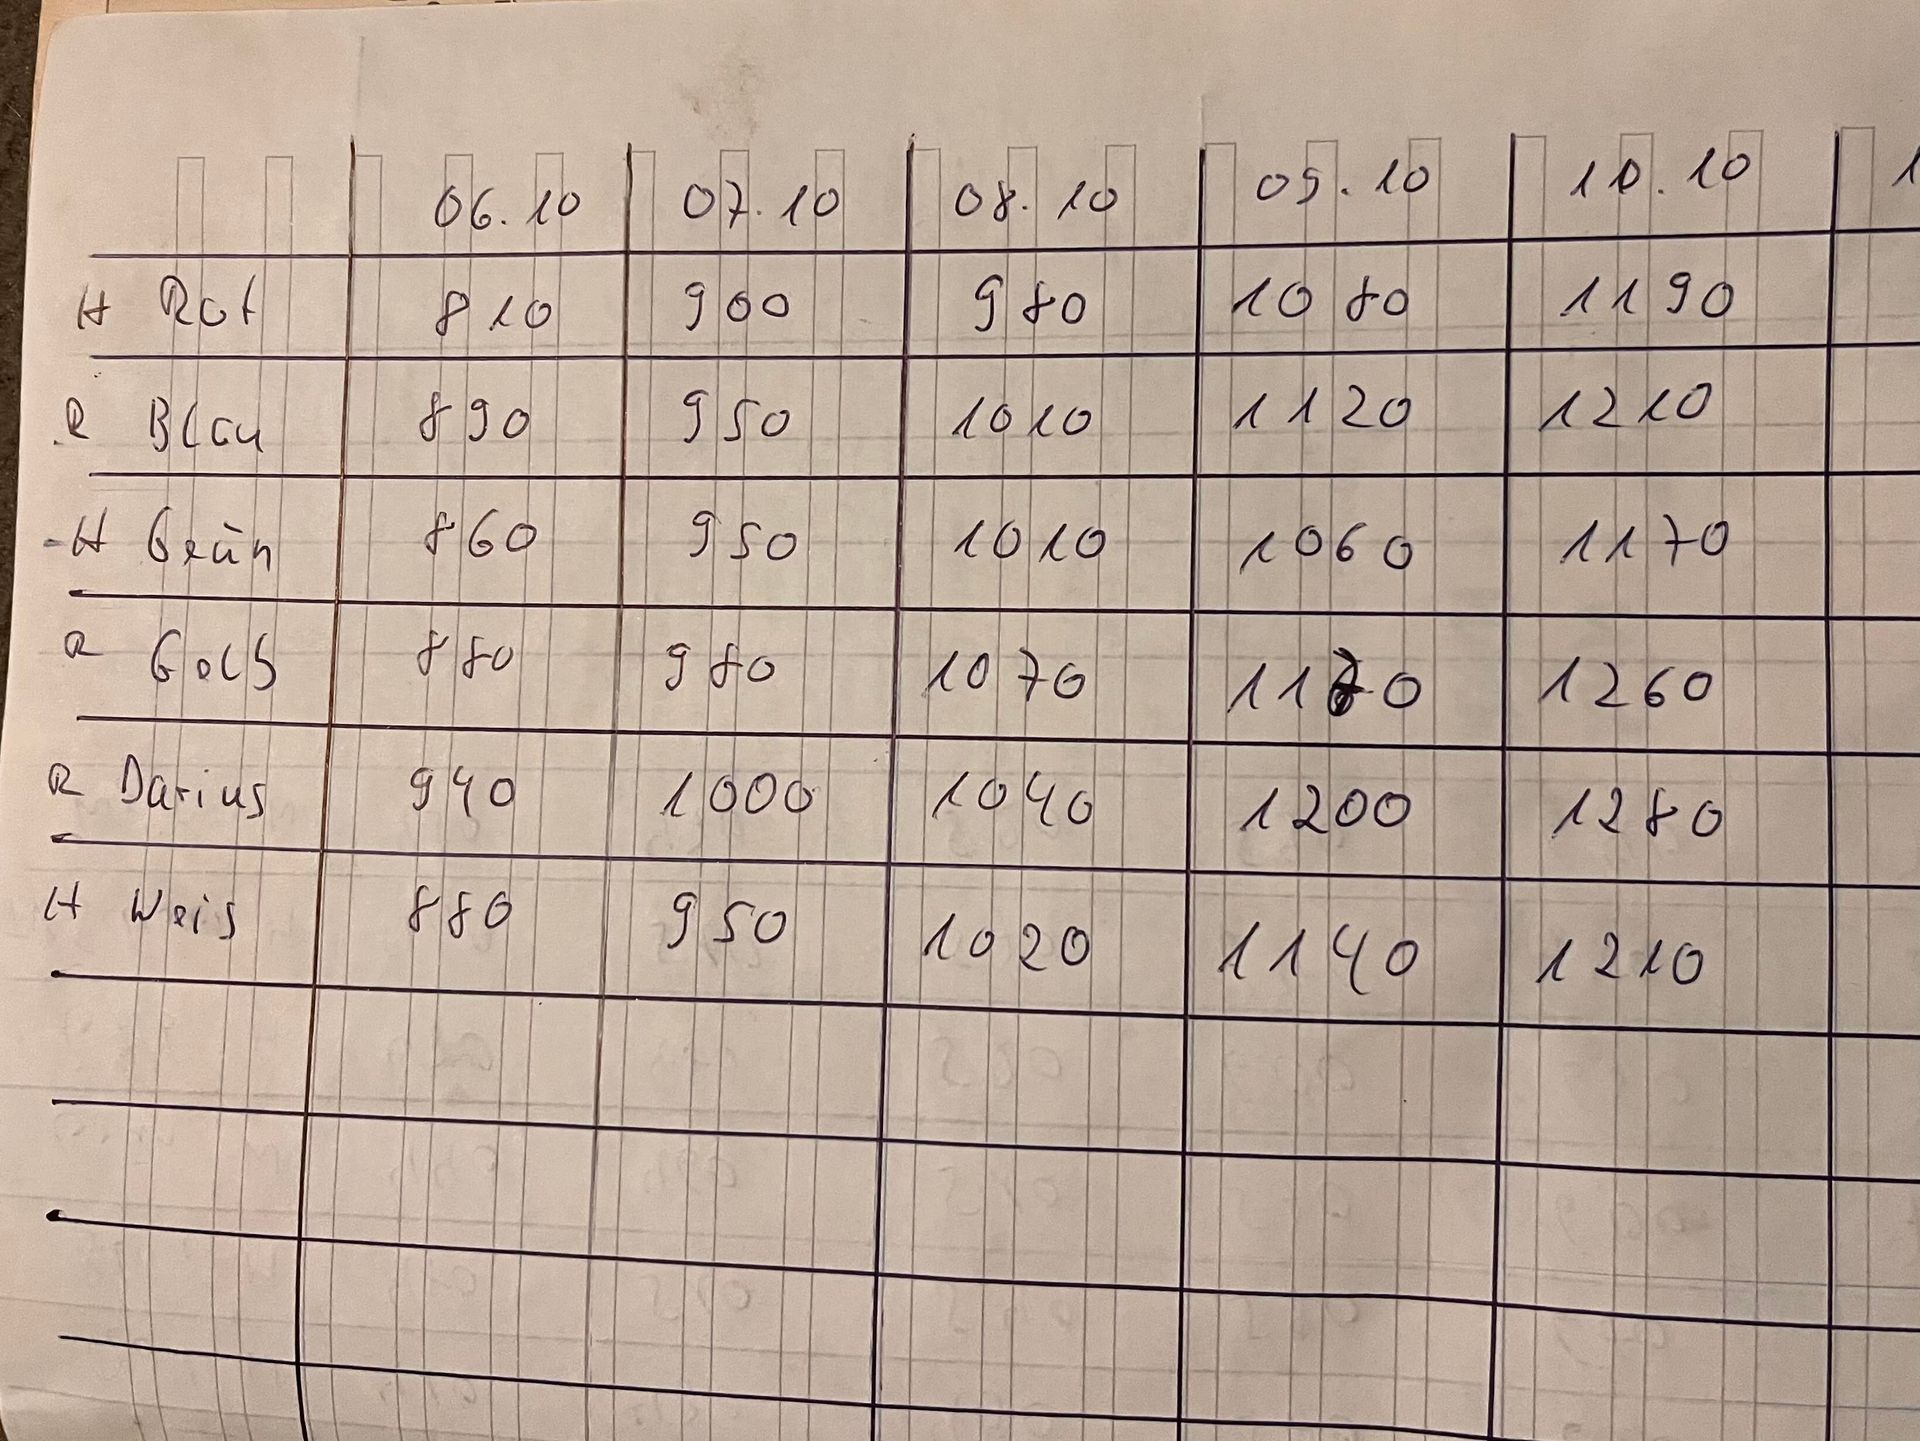 06.10 07.10 08.10 09.10 10.10 1
H Rot 810 900 980 1080 1190
R Blau 890 950 1010 1120 1210
H Grün 860 950 1010 1060 1170
R Gelb 880 980 1070 1260
R Darius 940 1000 1040 1200 1280
H Weis 880 950 1020 1140 1210